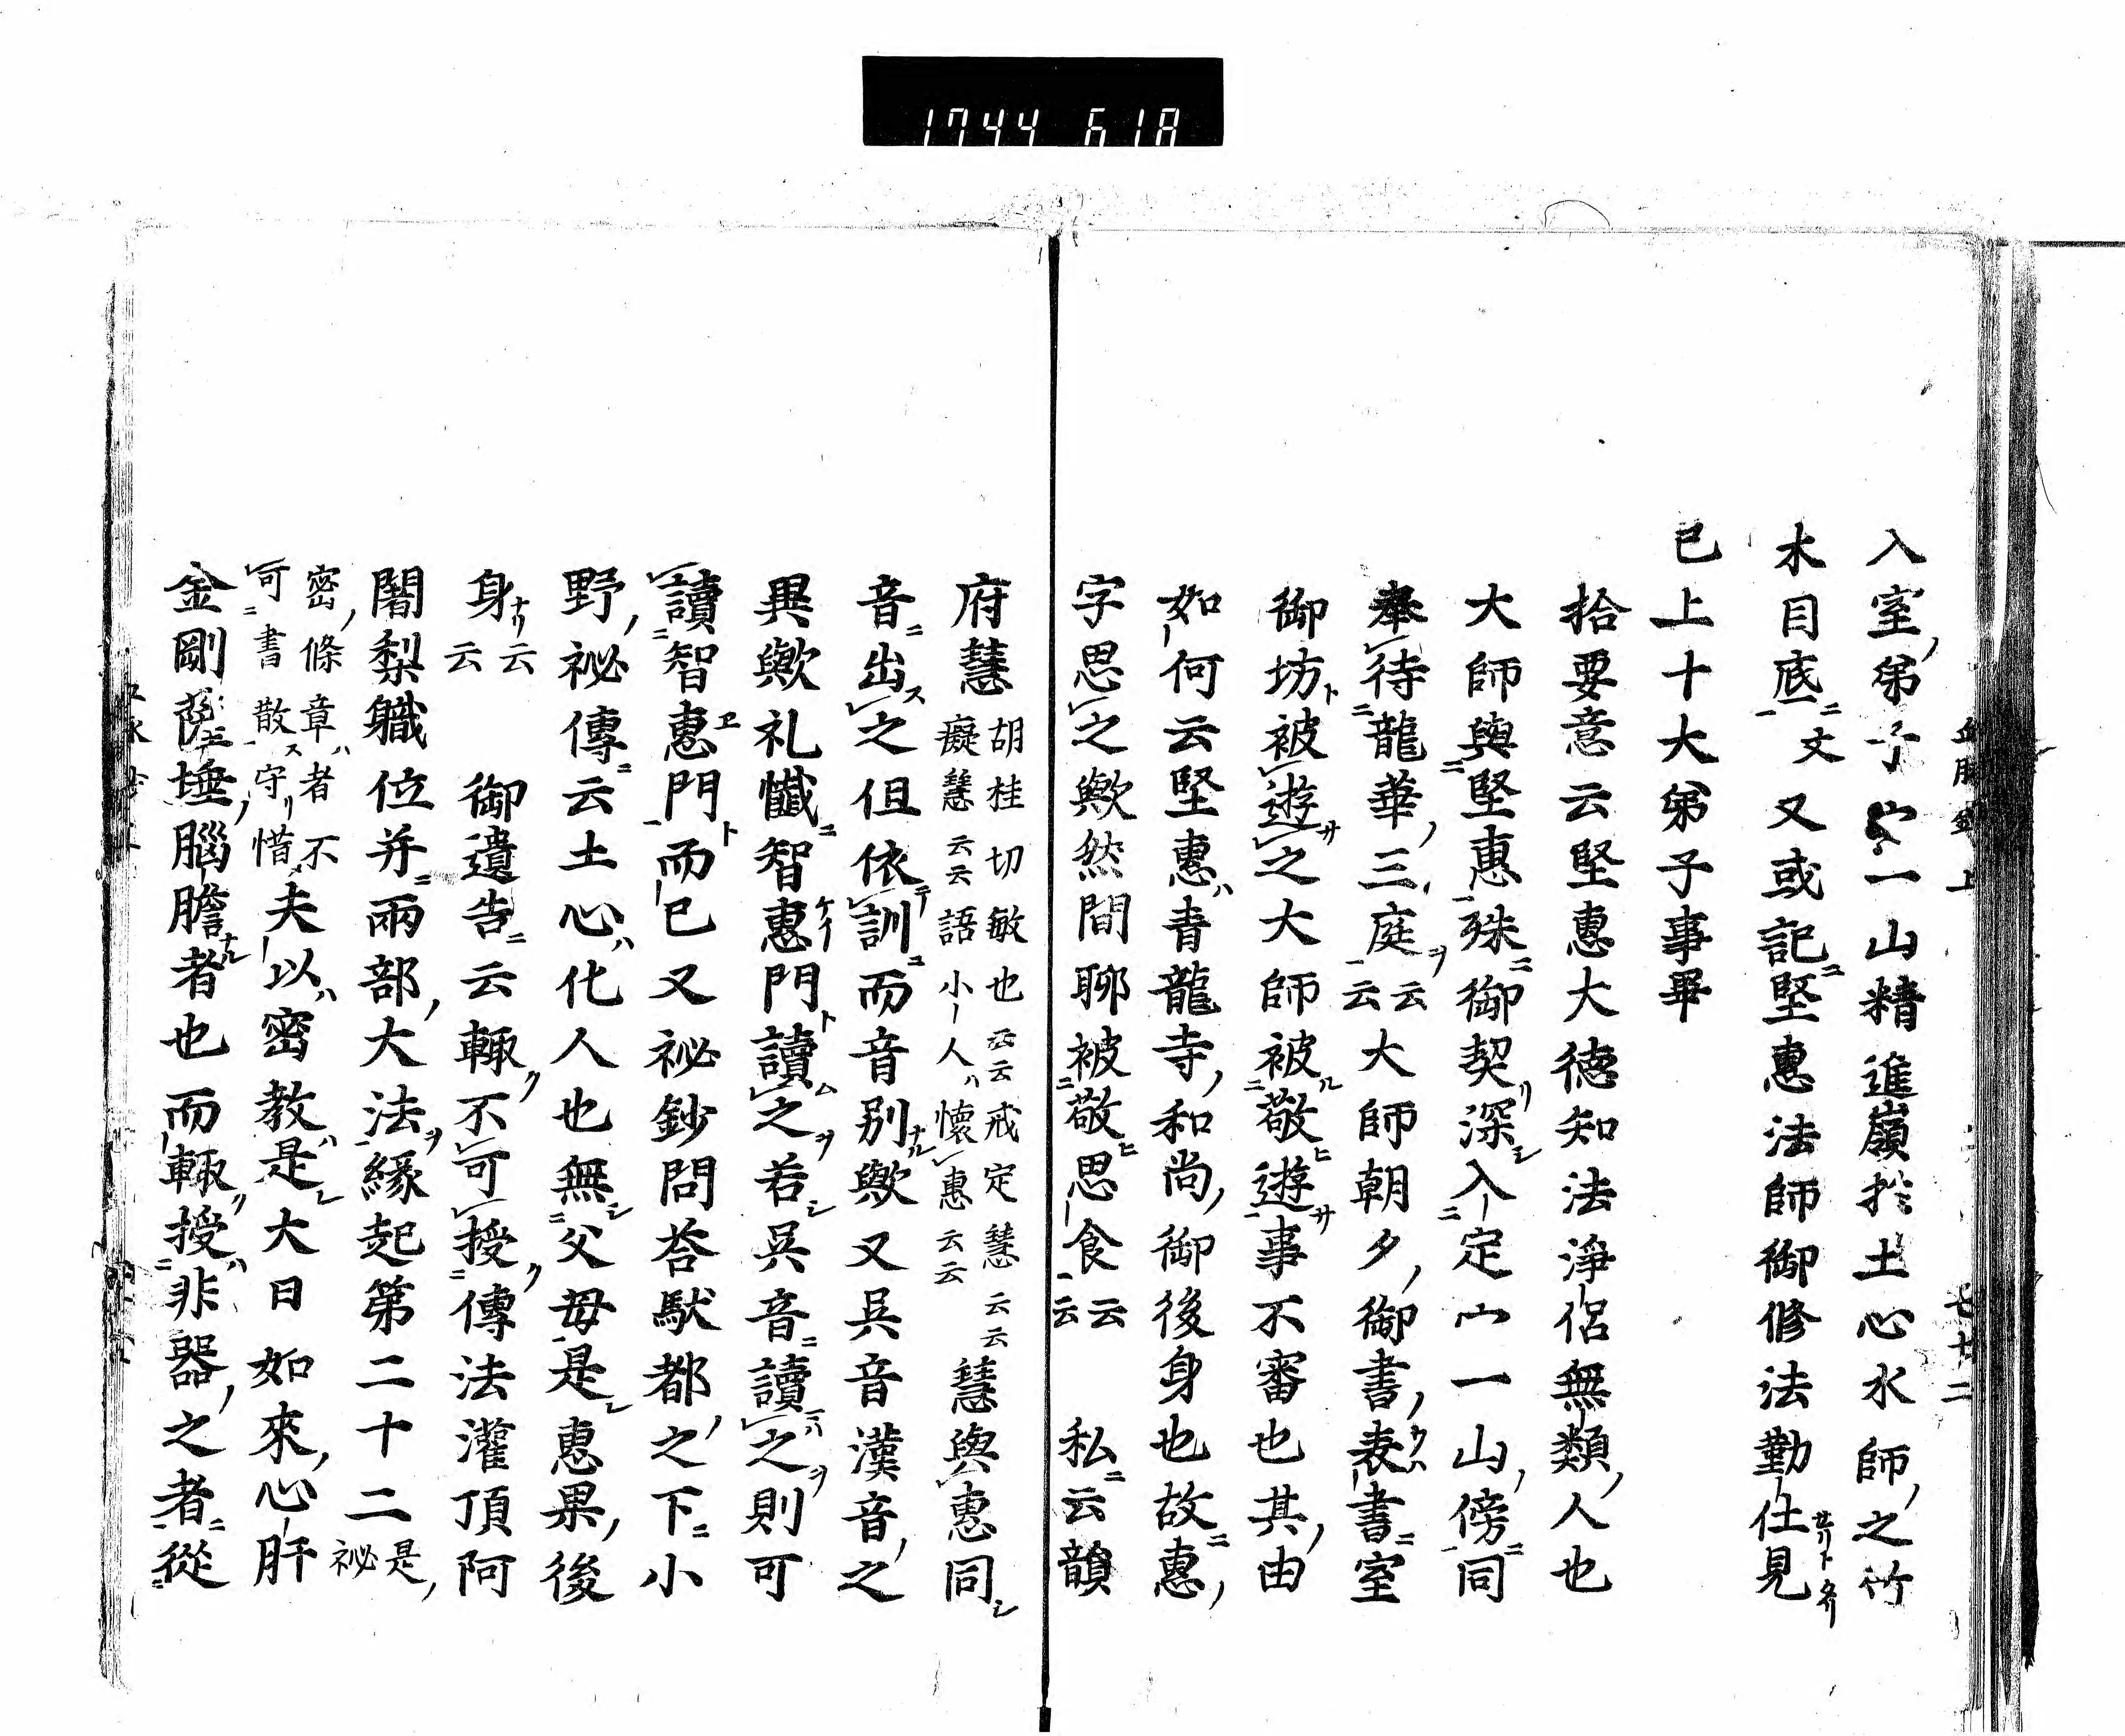 1744 618
入室弟子宀一山精進嶺於土心水師之竹
木目底文又或記堅惠法師御修法勤仕見
已上十大弟子事畢
拾要意云堅惠大德知法淨侶無類人也
大師與堅惠殊御契深入定宀一山傍同
奉待龍華三庭云云大師朝夕御書表書室
御坊被遊之大師被敬遊事不審也其由
如何云堅惠青龍寺和尚御後身也故惠
字思之歟然間聊被敬思食云云 私云韻
府慧胡桂切敏也云云戒定慧云云癡慧云云語小人懷惠云云慧與惠同
音出之但依訓而音別歟又呉音漢音之
異歟礼懺智惠門讀之若呉音讀之則可
讀智惠門而已又祕鈔問荅馱都之下小
野祕傳云土心化人也無父母是惠果後
身云云 御遺告云輙不可授傳法灌頂阿
闍梨職位并兩部大法縁起第二十二是祕
密條章者不可書散守惜夫以密教是大日如來心肝
金剛薩埵腦膽者也而輙授非器之者從